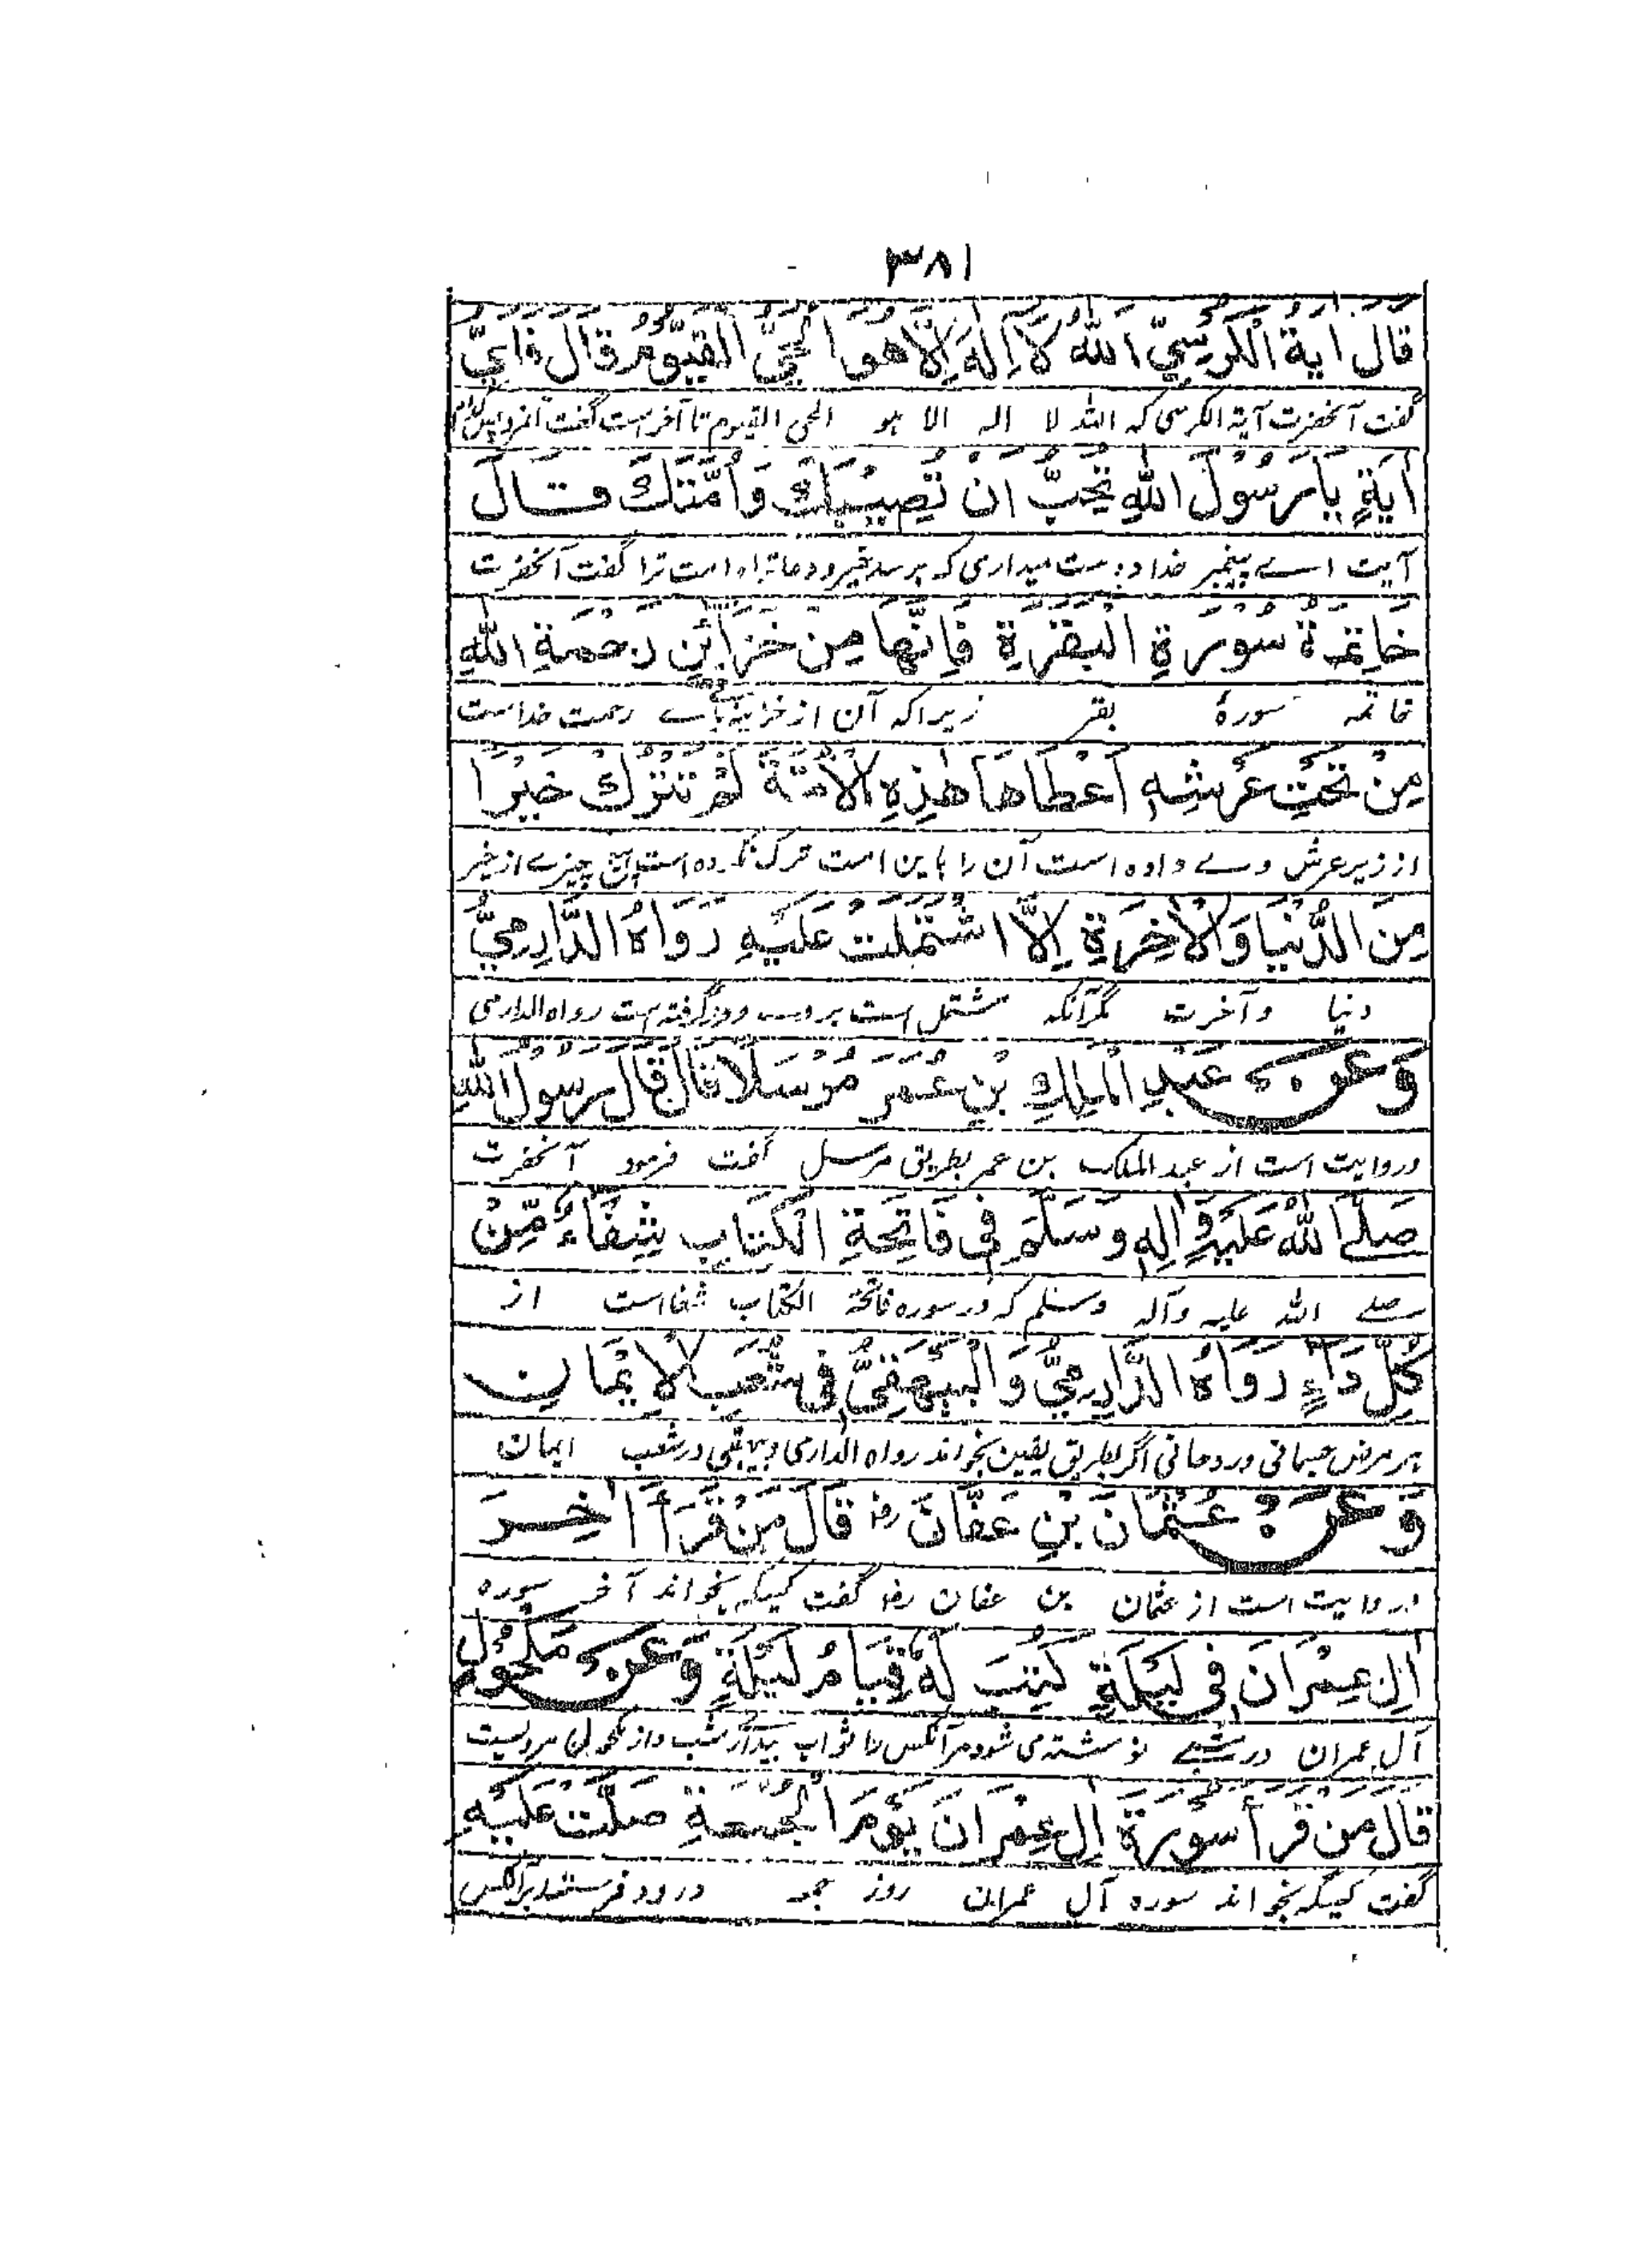 ٣٨١
قَالَ اٰيَةُ الْكُرْسِيِّ اللّٰهُ لَا اِلٰهَ اِلَّا هُوَ الْحَيُّ الْقَيُّوْمُ قَالَ فَاَيُّ
گفت آنحضرت آیة الکرسی که الله لا اله الا هو الحی القیوم تا آخر است گفت آنمرد پس کدام
اٰيَةٍ يَا رَسُوْلَ اللّٰهِ تُحِبُّ اَنْ تُصِيْبَكَ وَاُمَّتَكَ قَالَ
آیت اے پیغمبر خدا دوست میداری که برسد خیر و دعا ترا و امت ترا گفت آنحضرت
خَاتِمَةُ سُوْرَةِ الْبَقَرَةِ فَاِنَّهَا مِنْ خَزَائِنِ رَحْمَةِ اللّٰهِ
خاتمه سورۂ بقر زیرا که آن از خزینهاے رحمت خداست
مِنْ تَحْتِ عَرْشِهِ اَعْطَاهَا هٰذِهِ الْاُمَّةَ لَمْ تَتْرُكْ خَيْرًا
از زیر عرش وے داده است آن را باین امت ترک نکرده است آن چیزے از خیر
مِنَ الدُّنْيَا وَالْاٰخِرَةِ اِلَّا اشْتَمَلَتْ عَلَيْهِ رَوَاهُ الدَّارِمِيُّ
دنیا و آخرت مگر آنکه مشتمل است بروے و درگرفته است رواه الدارمی
وَعَنْ عَبْدِ الْمَلِكِ بْنِ عُمَرَ مُرْسَلًا قَالَ قَالَ رَسُوْلُ اللّٰهِ
و روایت است از عبد الملک بن عمر بطریق مرسل گفت فرمود آنحضرت
صَلَّى اللّٰهُ عَلَيْهِ وَاٰلِهِ وَسَلَّمَ فِي فَاتِحَةِ الْكِتَابِ شِفَاءٌ مِّنْ
صلے الله علیه وآله وسلم که در سوره فاتحة الکتاب شفا است از
كُلِّ دَاءٍ رَوَاهُ الدَّارِمِيُّ وَالْبَيْهَقِيُّ فِي شُعَبِ الْاِيْمَانِ
هر مرض جسمانی و روحانی اگر بطریق یقین بخواند رواه الدارمی و بیهقی در شعب ایمان
وَعَنْ عُثْمَانَ بْنِ عَفَّانَ رض قَالَ مَنْ قَرَأَ اٰخِرَ
و روایت است از عثمان بن عفان رض گفت کسیکه بخواند آخر سوره
اٰلِ عِمْرَانَ فِي لَيْلَةٍ كُتِبَ لَهُ قِيَامُ لَيْلَةٍ وَعَنْ مَكْحُوْلٍ
آل عمران در شبے نوشته می شود مر آنکس را ثواب بیداری شب و از مکحول مرویست
قَالَ مَنْ قَرَأَ سُوْرَةَ اٰلِ عِمْرَانَ يَوْمَ الْجُمُعَةِ صَلَّتْ عَلَيْهِ
گفت کسیکه بخواند سوره آل عمران روز جمعه درود فرستند بر آنکس